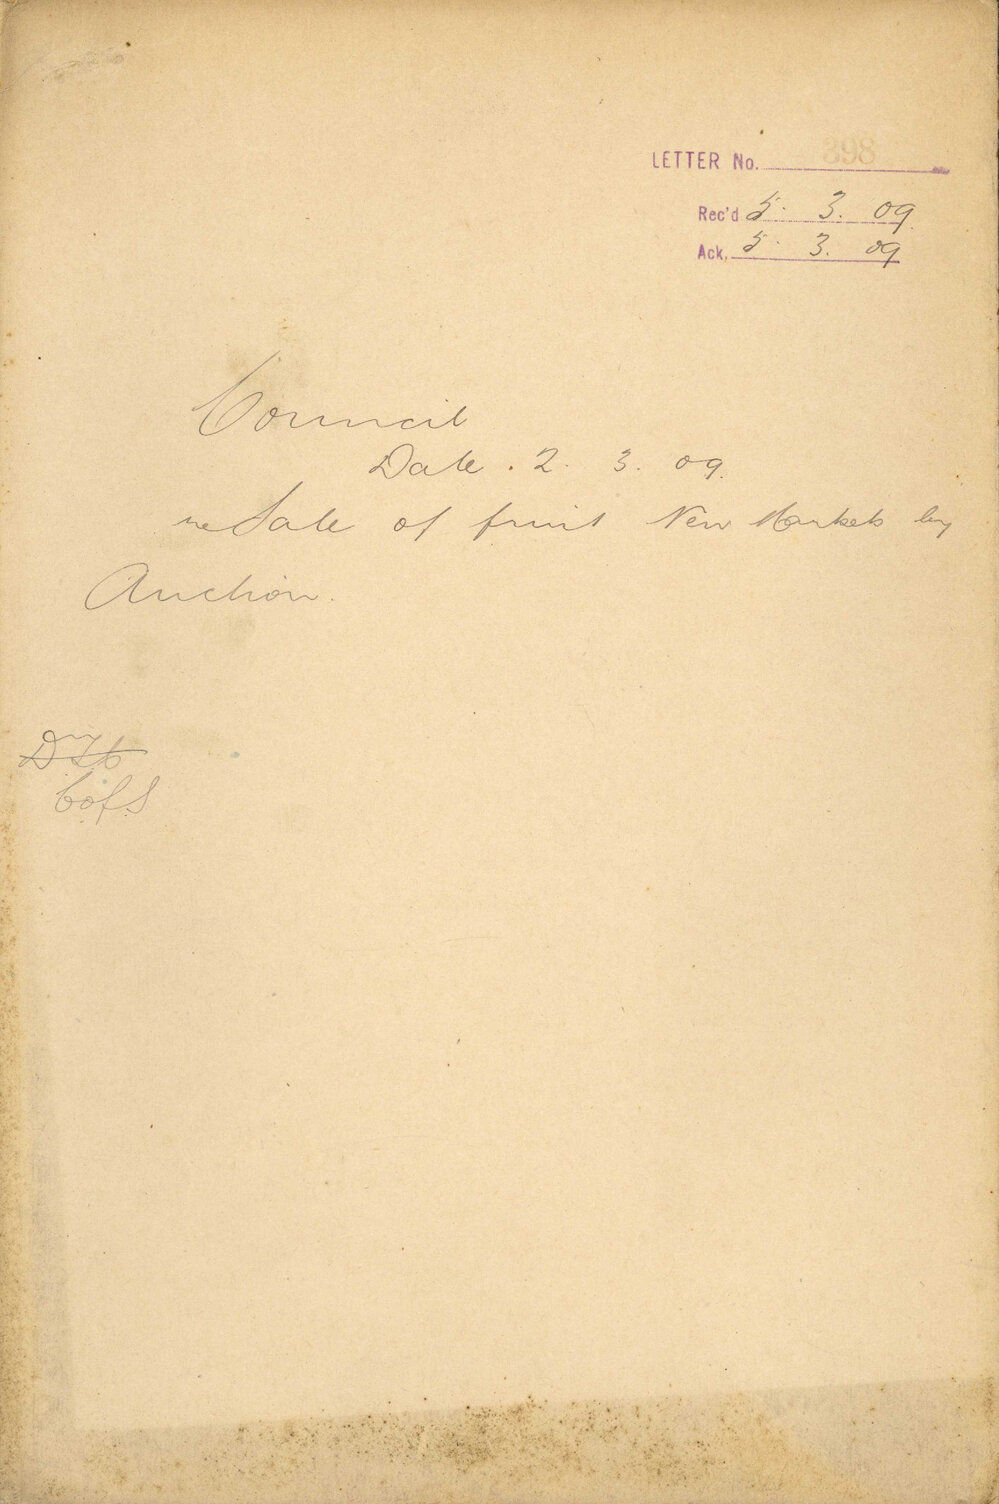 LETTER No. 398
Rec'd 5. 3. 09.
Ack. 5. 3. 09
Council
Date. 2. 3. 09.
re Sale of fruit New Markets by
Auction.
C of S